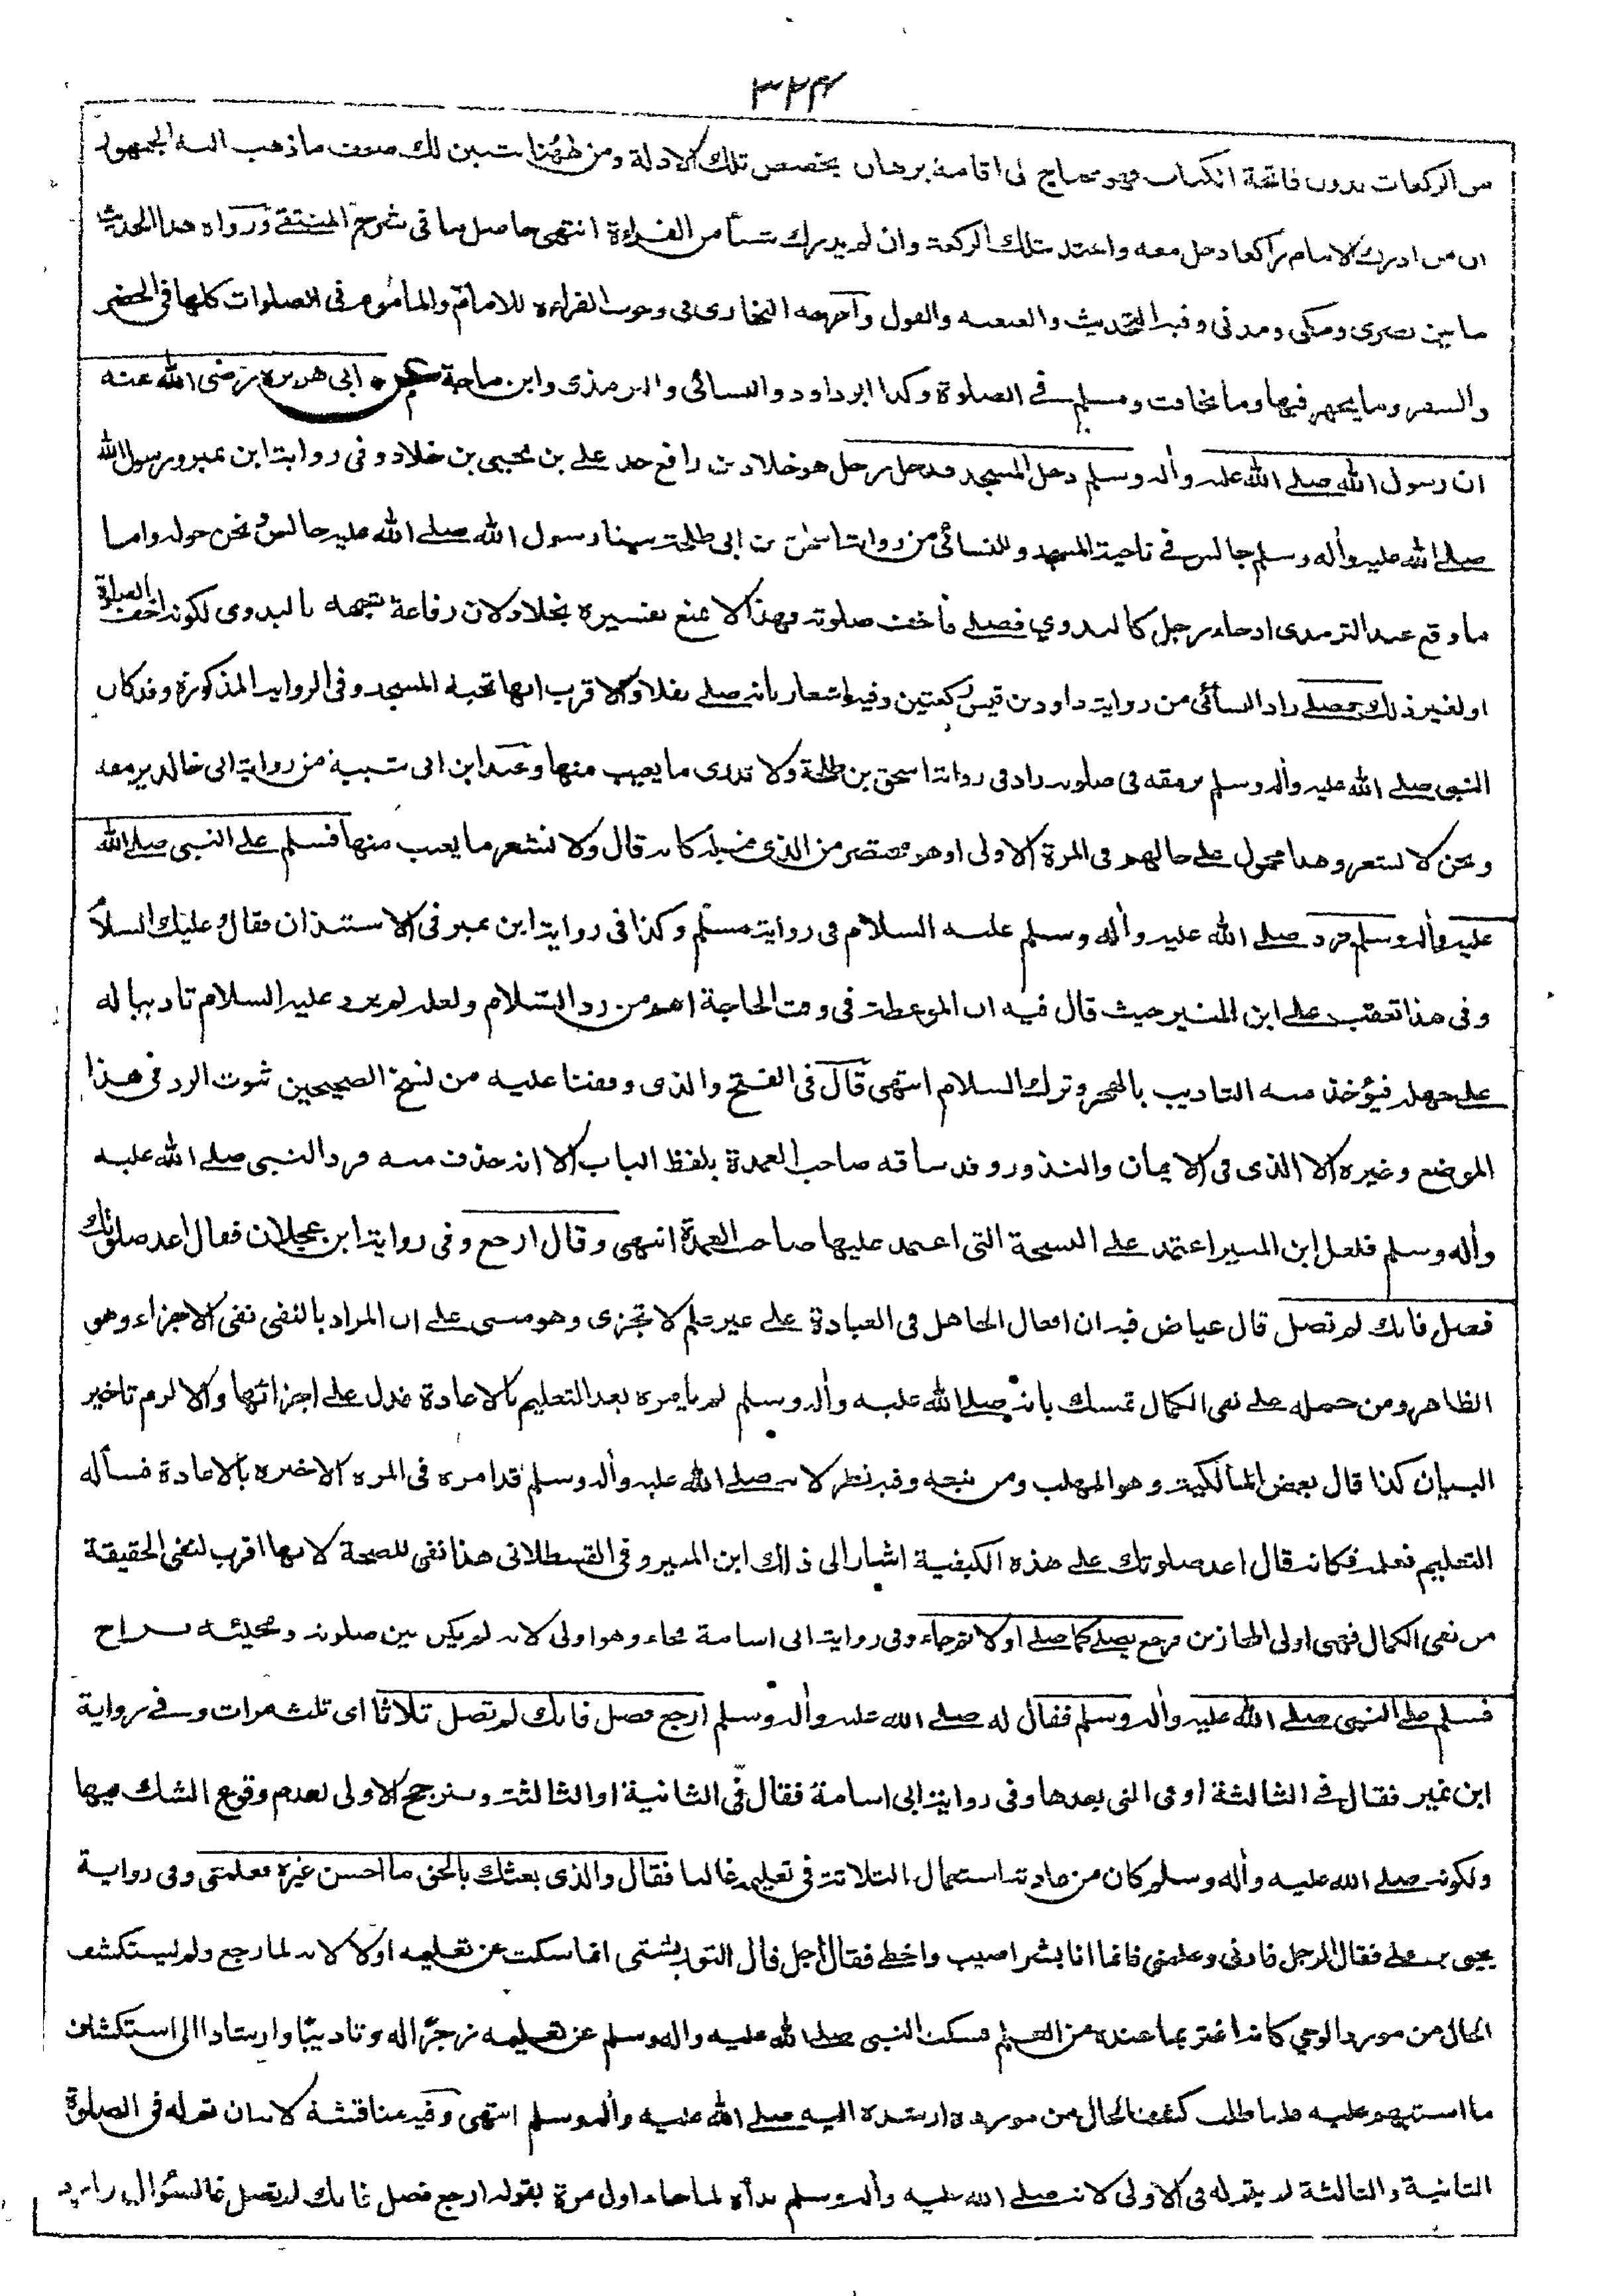 ٣٢٤
من الركعات بدون فاتحة الكتاب فهو محتاج الى اقامة برهان يخصص تلك الادلة ومن ههنا يتبين لك ضعف ما ذهب اليه الجمهور
ان من ادرك الامام راكعا دخل معه واعتد بتلك الركعة وان لم يدرك شيأ من القراءة انتهى حاصل ما فى شرح المنتقى ورواه هذا الحديث
ما بين بصرى ومكى ومدنى وفيه التحديث والعنعنه والقول واخرجه البخارى فى وجوب القراءه للامام والمأموم فى الصلوات كلها فى الحضر
والسفر وما يجهر فيها وما يخافت ومسلم فى الصلوة وكذا ابو داود والنسائى والترمذى وابن ماجة عن ابى هريره رضى الله عنه
ان رسول الله صلے الله عليه وأله وسلم دخل المسجد فدخل رجل هو خلاد بن رافع جد علے بن يحيى بن خلاد وفى رواية ابن نمير ورسول الله
صلے الله عليه وأله وسلم جالس فے ناحية المسجد وللنسائى من رواية اسحق بن ابى طلحة بينا رسول الله صلے الله عليه جالس ونحن حوله واما
ما وقع عند الترمذى اذ جاء رجل كالبدوي فصلے فأخف صلوته فهذا لا يمنع تفسيره بخلاد لان رفاعة شبهه بالبدوى لكونه اخف الصلوة
او لغير ذلك فصلے زاد النسائى من رواية داود بن قيس ركعتين وفيه اشعار بانه صلے نفلا والاقرب انها تحية المسجد وفى الرواية المذكورة وقد كان
النبى صلے الله عليه وأله وسلم يرمقه فى صلوته زاد فى رواية اسحق بن طلحة ولا تدرى ما يعيب منها وعند ابن ابى شيبة من رواية ابى خالد يرمقه
ونحن لا نشعر وهذا محمول علے حالهم فى المرة الاولى او هو مختصر من الذى قبله كانه قال ولا نشعر ما يعيب منها فسلم علے النبى صلے الله
عليه وأله وسلم فرد صلے الله عليه وأله وسلم عليه السلام فى رواية مسلم وكذا فى رواية ابن نمير فى الاستئذان فقال وعليك السلام
وفى هذا تعقب علے ابن المنير حيث قال فيه ان الموعظة فى وقت الحاجة اهم من رد السلام ولعله لم يرد عليه السلام تاديبا له
علے جهله فيؤخذ منه التاديب بالهجر وترك السلام انتهى قال فى الفتح والذى وقفنا عليه من نسخ الصحيحين ثبوت الرد فى هذا
الموضع وغيره الا الذى فى الايمان والنذور وقد ساقه صاحب العمدة بلفظ الباب الا انه حذف منه فرد النبى صلے الله عليه
وأله وسلم فلعل ابن المنير اعتمد علے النسخة التى اعتمد عليها صاحب العمدة انتهى وقال ارجع وفى رواية ابن عجلان فقال اعد صلوتك
فصل فانك لم تصل قال عياض فيه ان افعال الجاهل فى العبادة علے غير علم لا تجزى وهو مبنى علے ان المراد بالنفى نفى الاجزاء وهو
الظاهر ومن حمله علے نفى الكمال تمسك بانه صلے الله عليه وأله وسلم لم يامره بعد التعليم بالاعادة فدل علے اجزائها والا لزم تاخير
البيان كذا قال بعض المالكية وهو المهلب ومن تبعه وفيه نظر لانه صلے الله عليه وأله وسلم قد امره فى المره الاخيره بالاعادة فسأله
التعليم فعلمه فكانه قال اعد صلوتك علے هذه الكيفية اشار الى ذلك ابن المنير وفى القسطلانى هذا نفى للصحة لانها اقرب لنفى الحقيقة
من نفى الكمال فهى اولى المجازين فرجع يصلے كما صلے اولا ثم جاء وفى رواية ابى اسامة فجاء وهو اولى لانه لم يكن بين صلوته ومجيئه تراخ
فسلم علے النبى صلے الله عليه وأله وسلم فقال له صلے الله عليه وأله وسلم ارجع فصل فانك لم تصل ثلاثا اى ثلث مرات وفے رواية
ابن نمير فقال فے الثالثة او فى التى بعدها وفى رواية ابى اسامة فقال فى الثانية او الثالثة وتترجح الاولى لعدم وقوع الشك فيها
ولكونه صلے الله عليه وأله وسلم كان من عادته استعمال الثلاثة فى تعليمه غالبا فقال والذى بعثك بالحق ما احسن غيره فعلمنى وفى رواية
يحيى بن علے فقال الرجل فارنى وعلمنى فانما انا بشر اصيب واخطے فقال اجل قال التوربشتى انما سكت عن تعليمه اولا لانه لما رجع ولم يستكشف
الحال من مورد الوحي كانه اغتر بما عنده من العلم فسكت النبى صلے الله عليه واله وسلم عن تعليمه زجرًا له وتاديبًا وارشادا الى استكشاف
ما استبهم عليه فلما طلب كشف الحال من مورده ارشده اليه صلے الله عليه وأله وسلم انتهى وفيه مناقشة لانه ان تم له فى الصلوة
الثانية والثالثة لم يتم له فى الاولى لانه صلے الله عليه وأله وسلم بدأه لما جاء اول مرة بقوله ارجع فصل فانك لم تصل فالسؤال وارد